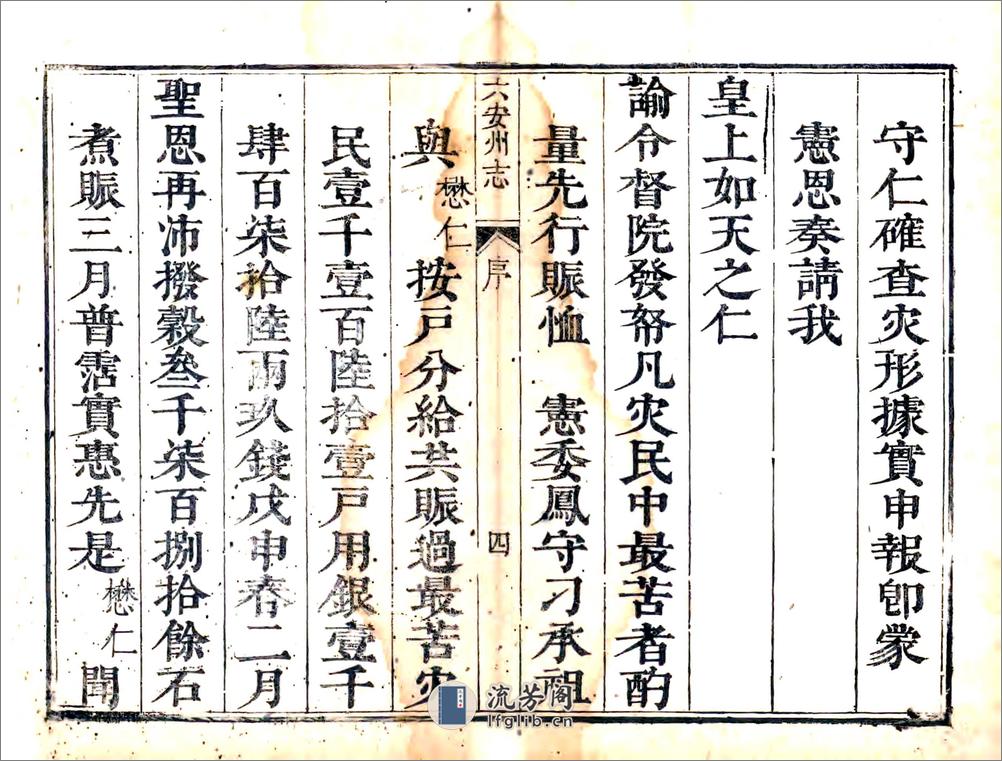 守仁確查灾形據實申報卽蒙
憲恩奏請我
皇上如天之仁
諭令督院發帑凡灾民中最苦者酌
量先行賑恤　憲委鳳守刁承祖
六安州志　序　四
與懋仁按戸分給共賑過最苦灾
民壹千壹百陸拾壹戸用銀壹千
肆百柒拾陸兩玖錢戊申春二月
聖恩再沛撥穀叁千柒百捌拾餘石
煮賑三月普霑實惠先是懋仁聞
流芳阁
lfglib.cn